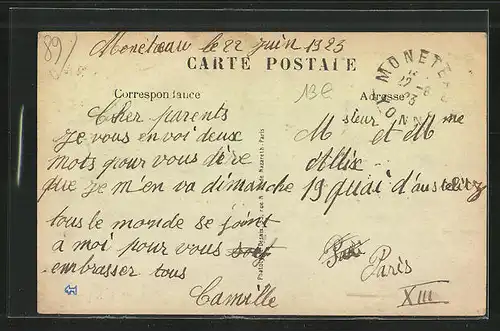 89)
Monéteau le 22 juin 1923
CARTE POSTALE
MONETEAU
YONNE
Correspondance
Adresse
13e
Cher parents
Je vous envoi deux
mots pour vous dire
que je m'en va dimanche
tous le monde se joint
a moi pour vous
embrasser tous
Camille
Msieur et Mme
Allix
19 quai d'austerlitz
Paris
Paris
XIII